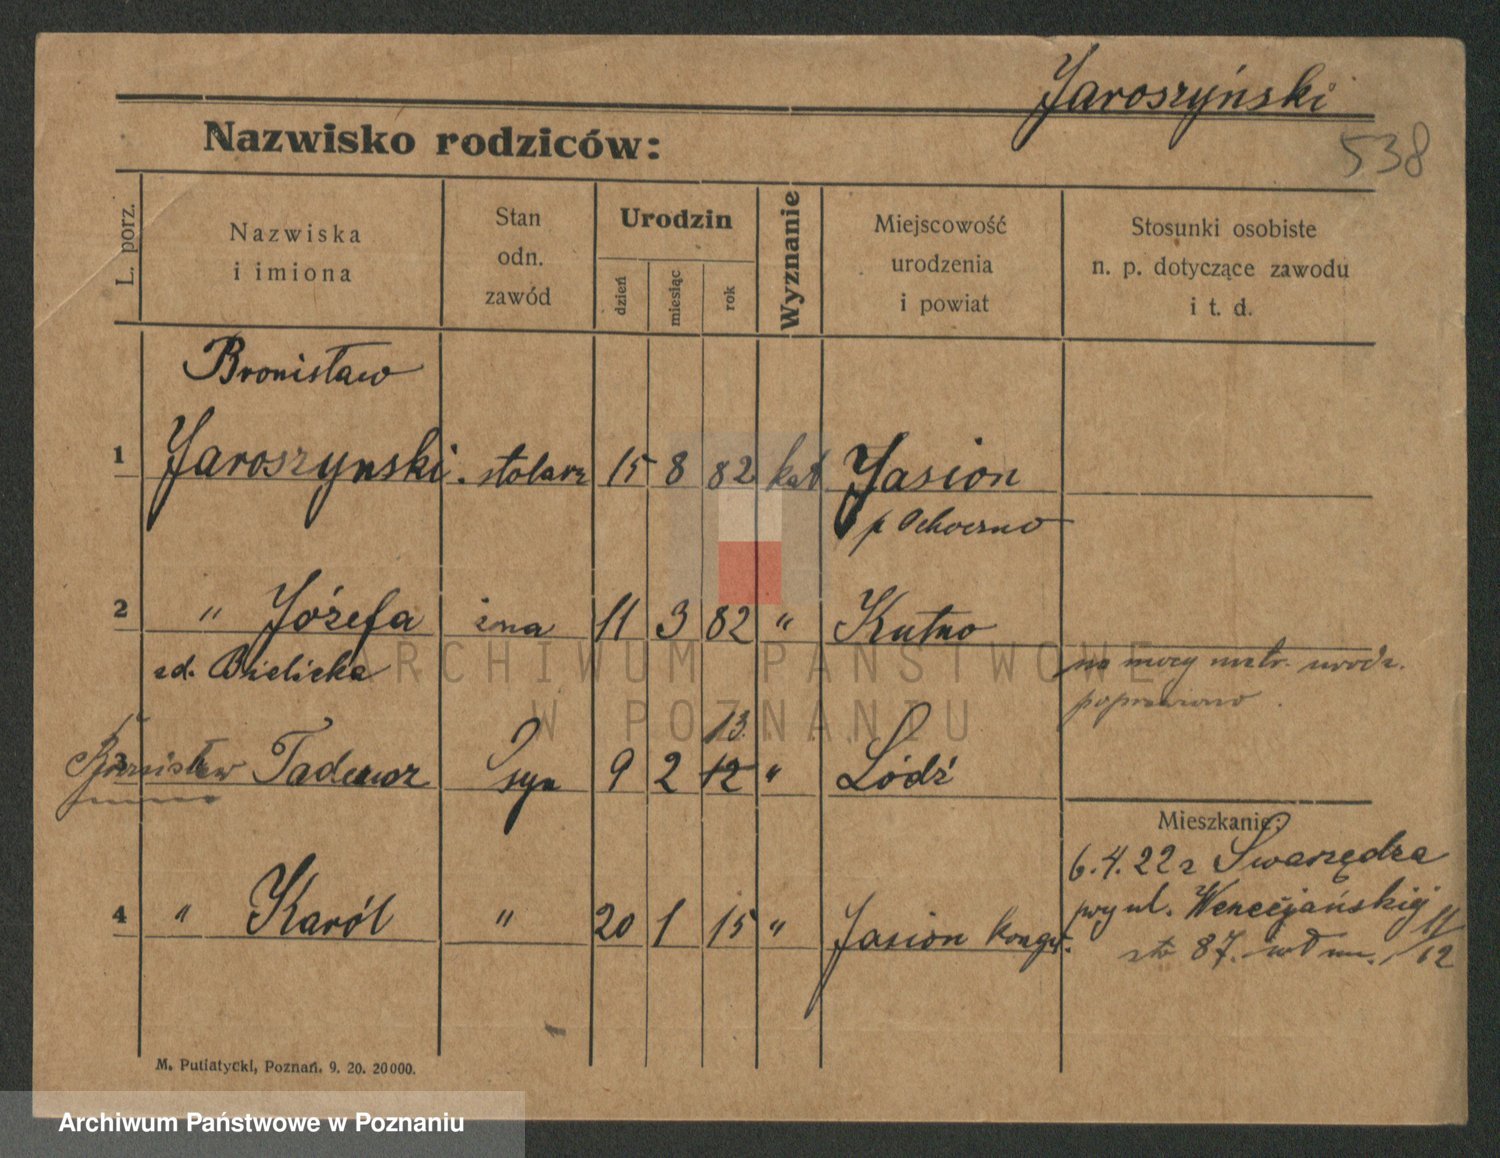 Jaroszyński
538
Nazwisko rodziców:
L. porz.
Nazwiska
i imiona
Stan
odn.
zawód
Urodzin
dzień
miesiąc
rok
Wyznanie
Miejscowość
urodzenia
i powiat
Stosunki osobiste
n. p. dotyczące zawodu
i t. d.
Bronisław
1 Jaroszynski. stolarz 15 8 82 kat Jasion
2 " Józefa żona 11 3 82 " Kutno
zd. Bielicka
na mocy metr. urodz.
poprawiono.
13.
3 Bronisław Tadeusz syn 9 2 12 " Łódź
Mieszkanie:
6.4.22 z Swarzędza
4 " Karól " 20 1 15 " Jasion kongr.
przy ul. Wenecjańskiej 11/12
87.
M. Putiatycki, Poznań. 9. 20. 20000.
ARCHIWUM PAŃSTWOWE
W POZNANIU
Archiwum Państwowe w Poznaniu